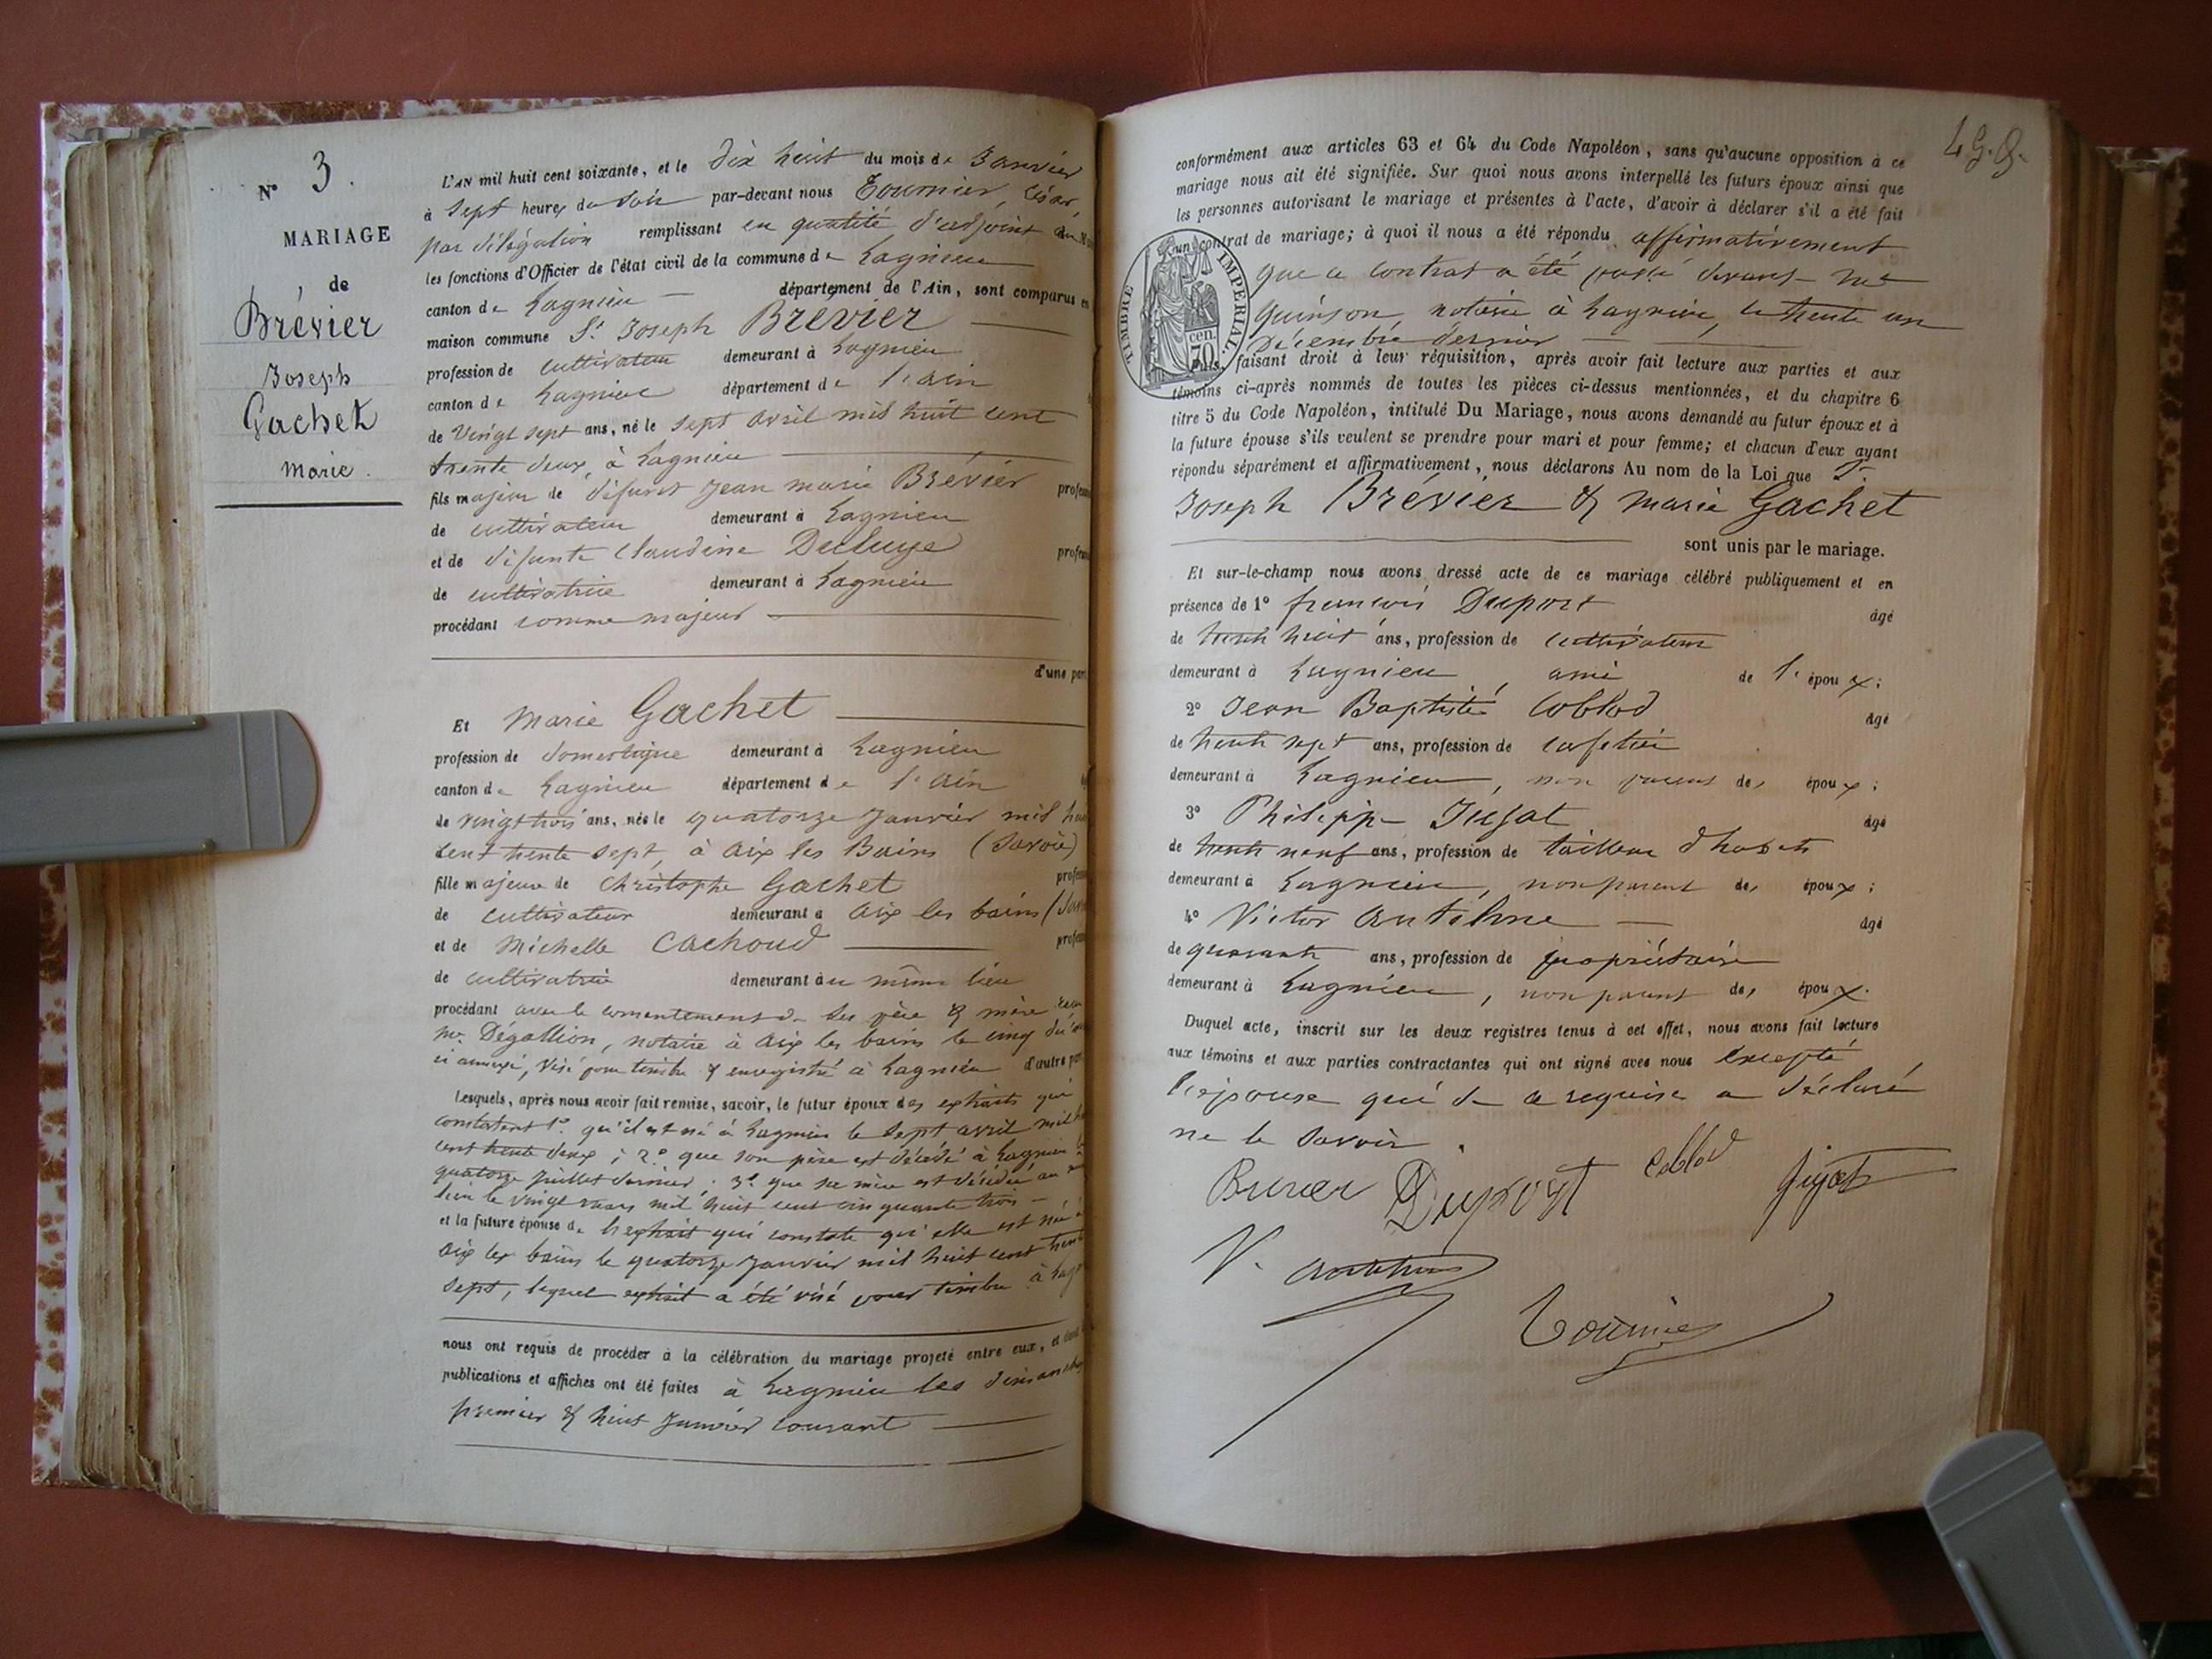 N° 3.
MARIAGE
de
Brévier
Joseph
Gachet
Marie.
L'AN mil huit cent soixante, et le dix huit du mois de Janvier
à Sept heures du soir par-devant nous Tournier, César,
par délégation remplissant en qualité d'adjoint au
les fonctions d'Officier de l'état civil de la commune de Lagnieu
canton de Lagnieu département de l'Ain, sont comparus en
maison commune Sr. Joseph Brévier
profession de cultivateur demeurant à Lagnieu
canton de Lagnieu département de l'ain
de Vingt sept ans, né le sept avril mil huit cent
trente deux, à Lagnieu
fils majeur de défunt Jean Marie Brévier profess
de cultivateur demeurant à Lagnieu
et de défunte Claudine profess
de cultivatrice demeurant à Lagnieu
procédant comme majeur
d'une part
Et Marie Gachet
profession de domestique demeurant à Lagnieu
canton de Lagnieu département de l'ain
de vingt trois ans, née le quatorze Janvier mil hui
cent trente sept, à Aix les Bains (Savoie)
fille majeure de Christophe Gachet profess
de cultivateur demeurant à aix les bains (Sav
et de Michelle Cachoud profess
de cultivatrice demeurant au même lieu
procédant avec le consentement de ses père & mère
Me. Dégallion, notaire à Aix les bains le cinq du
ci annexé, Visé pour timbre & enregistré à Lagnieu d'autre part
Lesquels, après nous avoir fait remise, savoir, le futur époux des extraits qui
constatent 1°. qu'il est né à Lagnieu le sept avril mil
cent trente deux; 2°. que son père est décédé à Lagnieu
quatorze Juillet dernier; 3°. que sa mère est décédée au
lieu le vingt mars mil huit cent cinquante trois
et la future épouse de l'extrait qui constate qu'elle est née à
Aix les bains le quatorze Janvier mil huit cent trente
sept, lequel extrait a été visé pour timbre à Lagn
nous ont requis de procéder à la célébration du mariage projeté entre eux, et dont
publications et affiches ont été faites à Lagnieu les dimanches
premier & huit Janvier courant
conformément aux articles 63 et 64 du Code Napoléon, sans qu'aucune opposition à ce
mariage nous ait été signifiée. Sur quoi nous avons interpellé les futurs époux ainsi que
les personnes autorisant le mariage et présentes à l'acte, d'avoir à déclarer s'il a été fait
un contrat de mariage; à quoi il nous a été répondu affirmativement
que ce contrat a été passé devant Me
Quinson, notaire à Lagnieu, le trente un
Décembre dernier
TIMBRE IMPERIAL
70 cen.
Puis, faisant droit à leur réquisition, après avoir fait lecture aux parties et aux
témoins ci-après nommés de toutes les pièces ci-dessus mentionnées, et du chapitre 6
titre 5 du Code Napoléon, intitulé Du Mariage, nous avons demandé au futur époux et à
la future épouse s'ils veulent se prendre pour mari et pour femme; et chacun d'eux ayant
répondu séparément et affirmativement, nous déclarons Au nom de la Loi que Sr.
Joseph Brévier & Marie Gachet
sont unis par le mariage.
Et sur-le-champ nous avons dressé acte de ce mariage célébré publiquement et en
présence de 1° françois Duport âgé
de trente huit ans, profession de cultivateur
demeurant à Lagnieu, ami de l'époux;
2° Jean Baptiste Coblod âgé
de trente sept ans, profession de cafetier
demeurant à Lagnieu, non parent des époux;
3° Philippe Jugat âgé
de trente neuf ans, profession de tailleur d'habits
demeurant à Lagnieu, non parent des époux;
4° Victor Anthelme âgé
de quarante ans, profession de propriétaire
demeurant à Lagnieu, non parent des époux.
Duquel acte, inscrit sur les deux registres tenus à cet effet, nous avons fait lecture
aux témoins et aux parties contractantes qui ont signé avec nous excepté
l'épouse qui de ce requise a déclaré
ne le savoir.
Duport
Coblod
V.
Tournier